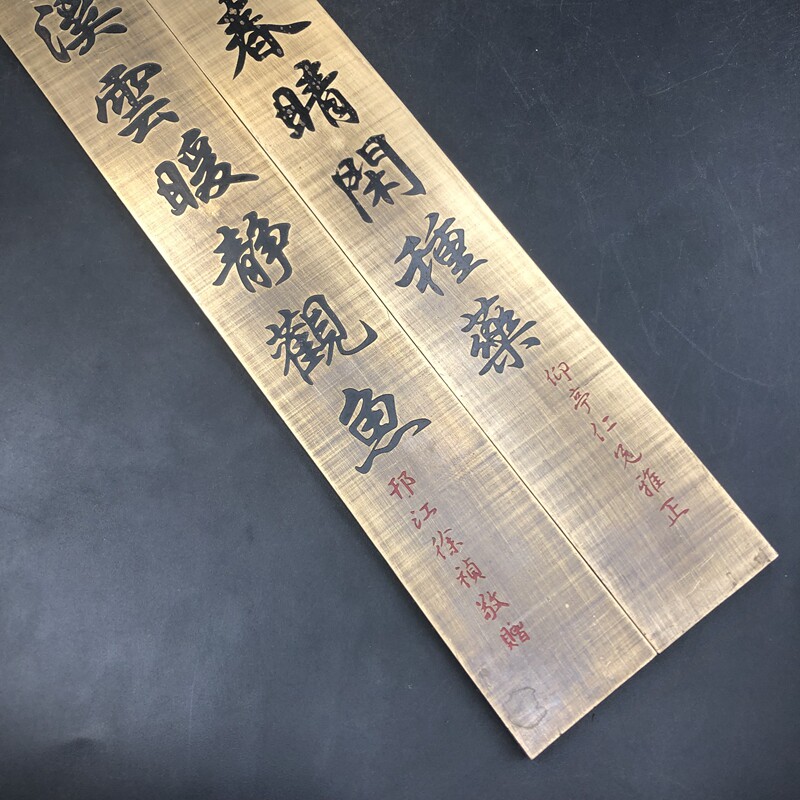 春晴閑種藥
仰亭仁兄雅正
溪雲暖靜觀魚
邗江徐禎敬贈